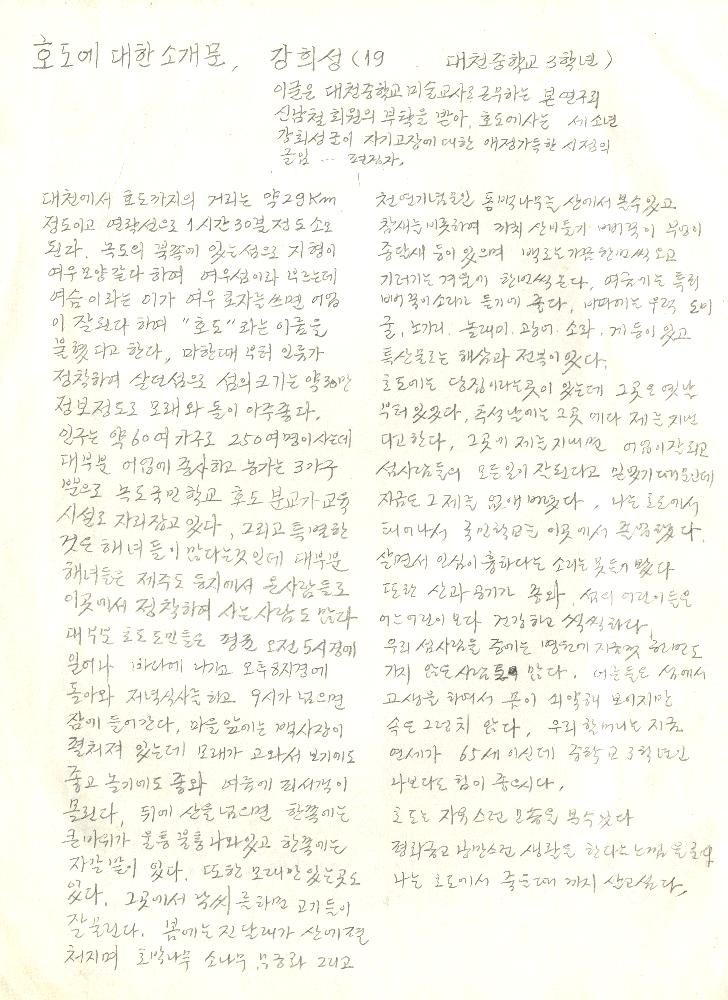 호도에 대한 소개문, 강희성 (19 대천중학교 3학년)
이글은 대천중학교 미술교사로 근무하는 본 연구회
신남철 회원의 부탁을 받아, 호도에사는 세소년
강희성군이 자기고장에 대한 애정가득한 시정의
글임 … 편집자.
대천에서 호도까지의 거리는 약29Km
정도이고 연락선으로 1시간 30분 정도 소요
된다. 녹도의 북쪽에 있는섬으로 지형이
여우모양 같다 하여 여우섬이라 부르는데
여슴이라는 이가 여우 호자를 쓰면 어업
이 잘된다 하여 "호도"라는 이름을
붙였다고 한다, 마한때부터 인류가
정착하여 살던섬으로 섬의크기는 약30만
정보정도로 모래와 돌이 아주좋다.
인구는 약 60여 가구로 250여명이사는데
대부분 어업에 종사하고 농가는 3가구
뿐으로 녹도국민학교 호도 분교가 교육
시설로 자리잡고 있다, 그리고 특별한
것은 해녀들이 많다는것인데 대부분
해녀들은 제주도 등지에서 온사람들로
이곳에서 정착하여 사는사람도 많다
대부분 호도도민들은 평균 오전 5시경에
일어나 바다에 나가고 오후8시경에
돌아와 저녁식사를하고 9시가 넘으면
잠에 들어간다, 마을앞에는 백사장이
펼쳐져 있는데 모래가 고와서 보기에도
좋고 놀기에도 좋와 여름에 피서객이
몰린다, 뒤에 산을넘으면 한쪽에는
큰바위가 울퉁불퉁나와있고 한쪽에는
자갈밭이 있다. 또한 모래만 있는곳도
있다. 그곳에서 낚씨를하면 고기들이
잘물린다. 봄에는 진달래가 산에 펼
쳐지며 호박나무 소나무 무궁화 그리고
천연기념물인 동백나무를 산에서 볼수있고
참새를비롯하여 까치 산비들기 뻐꾹이 부엉이
종달새 등이 있으며 백로는가끔 한번씩 오고
기러기는 겨울에 한번씩온다, 여름에는 특히
뻐꾹이소리가 듣기에 좋다, 바다에는 우럭 도미
굴, 노가리. 놀래미. 광어. 소라. 게 등이 있고
특산물로는 해삼과 전복이 있다.
호도에는 당집이라는곳이 있는데 그곳은 옛날
부터 있었다, 추석날에는 그곳에다 제를 지낸
다고한다, 그곳에 제를지내면 어업이잘되고
섬사람들의 모든일이 잘된다고 믿었기때문인데
지금은 그제를 없애 버렸다, 나는 호도에서
태어나서 국민학교를 이곳에서 졸업했다.
살면서 인심이 흉하다는 소리는 못들어 봤다
또한 산과 공기가 좋와 섬의 어린이들은
어느어린이 보다 건강하고 씩씩하다,
우리 섬사람들 중에는 병원에 지금껏 한번도
가지 않은 사람도 많다. 어른들은 섬에서
고생을 하며서 몸이 쇠약해 보이지만
속은 그런치 않다, 우리 할머니는 지금
연세가 65세 이신데 중학교 3학년인
나보다도 힘이 좋으시다,
호도는 자유스런 모습을 볼수있다
평화롭고 낭만스런 생활을 한다는느낌을 준다
나는 호도에서 죽을때 까지 살고싶다,